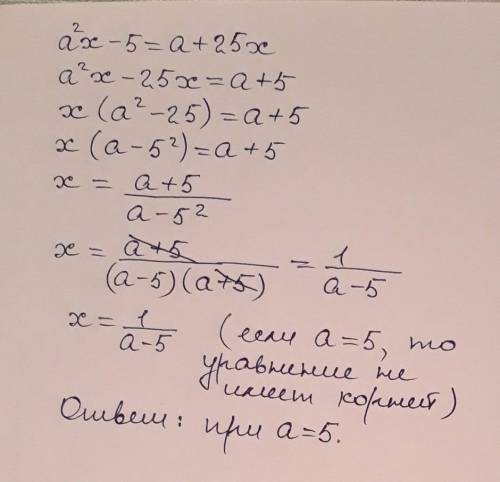 a²x - 5 = a + 25x
a²x - 25x = a + 5
x (a² - 25) = a + 5
x (a - 5²) = a + 5
x = a + 5 / a - 5²
x = a + 5 / (a - 5)(a + 5) = 1 / a - 5
x = 1 / a - 5 (если a = 5, то
уравнение не
имеет корней)
Ответ: при a = 5.